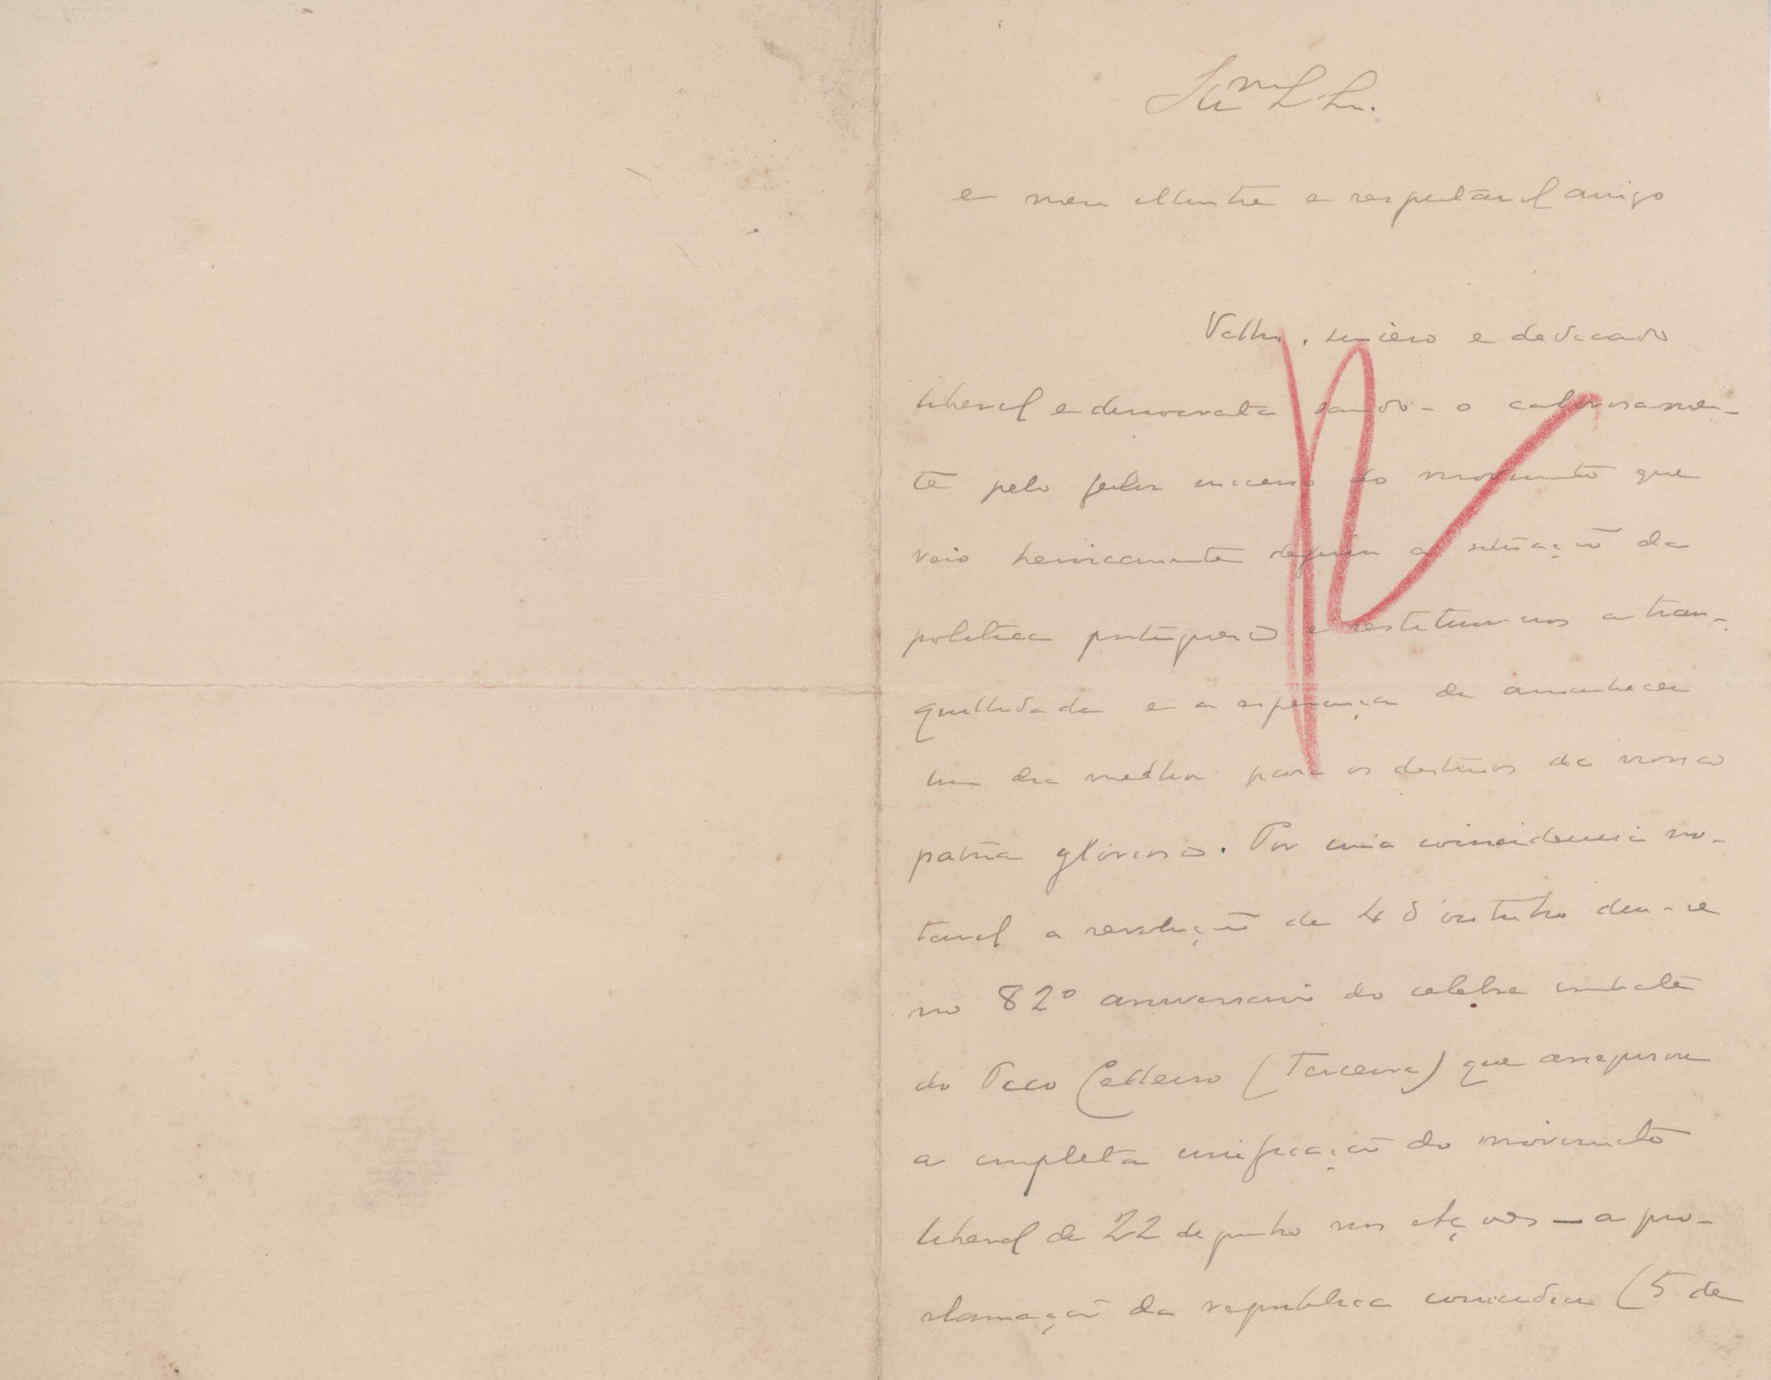 Ex.mo Sr.
e meu illustre e respeitavel amigo
Velho, sincero e dedicado
liberal e democrata saudo-o calorosamen-
te pelo feliz successo do movimento que
veio heroicamente definir a situação da
politica portuguesa e restituir-nos a tran-
quillidade e a esperança de amanhecer
um dia melhor para os destinos da nossa
patria gloriosa. Por uma coincidencia no-
tavel a revolução de 4 d'outubro deu-se
no 82º anniversario do celebre combate
do Pico Celleiro (Terceira) que assegurou
a completa unificação do movimento
liberal de 22 de junho nos Açores — a pro-
clamação da republica coincidiu (5 de